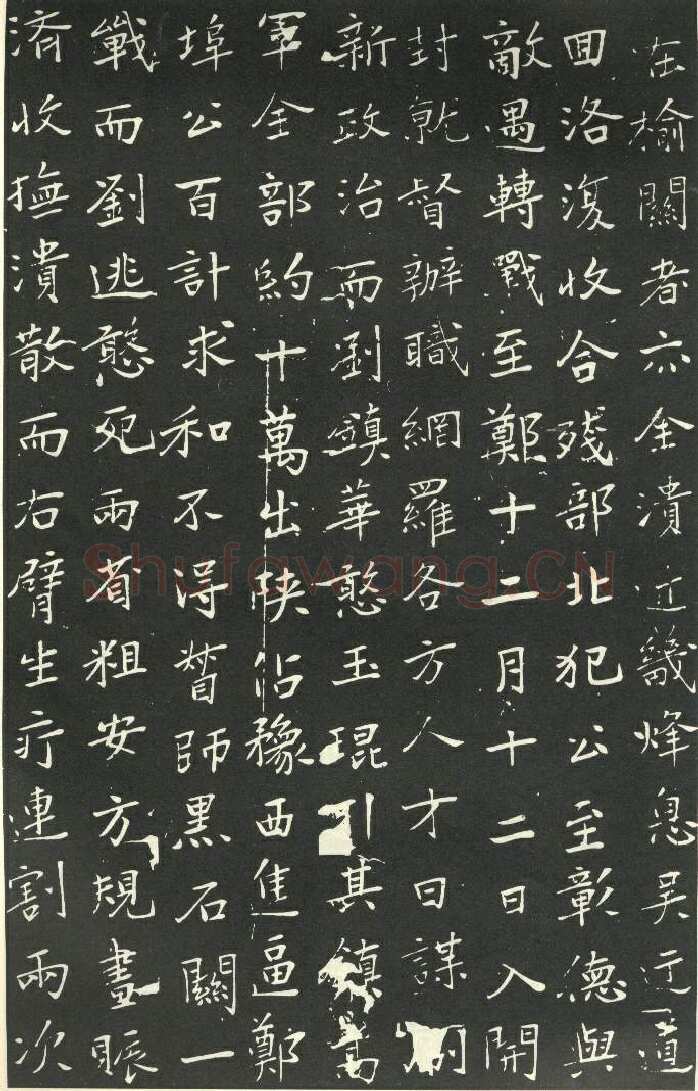 在榆關者亦全潰近畿烽息吳迂道
回洛復收合殘部北犯公至彰德與
敵遇轉戰至鄭十二月十二日入開
封就督辦職網羅各方人才日謀
新政治而劉鎮華憨玉琨引其鎮嵩
軍全部約十萬出陝佔豫西進逼鄭
埠公百計求和不得督師黑石關一
戰而劉逃憨死兩省粗安方規畫賑
濟收撫潰散而右臂生疔連割兩次
Shufawang.CN